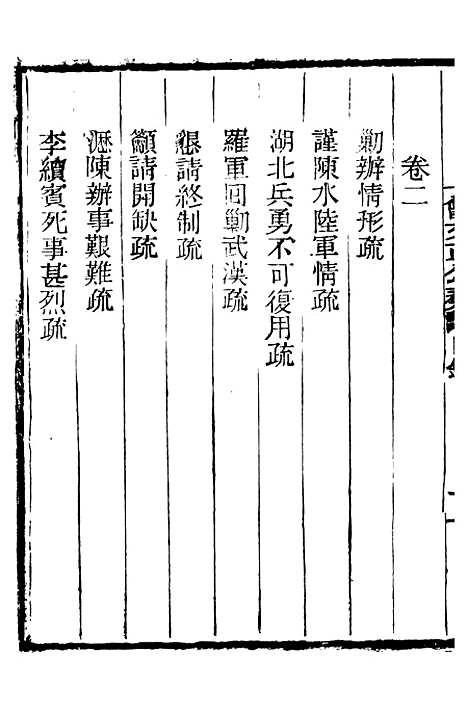 卷二
勦辦情形疏
謹陳水陸軍情疏
湖北兵勇不可復用疏
羅軍囘勦武漢疏
懇請終制疏
籲請開缺疏
瀝陳辦事艱難疏
李續賓死事甚烈疏